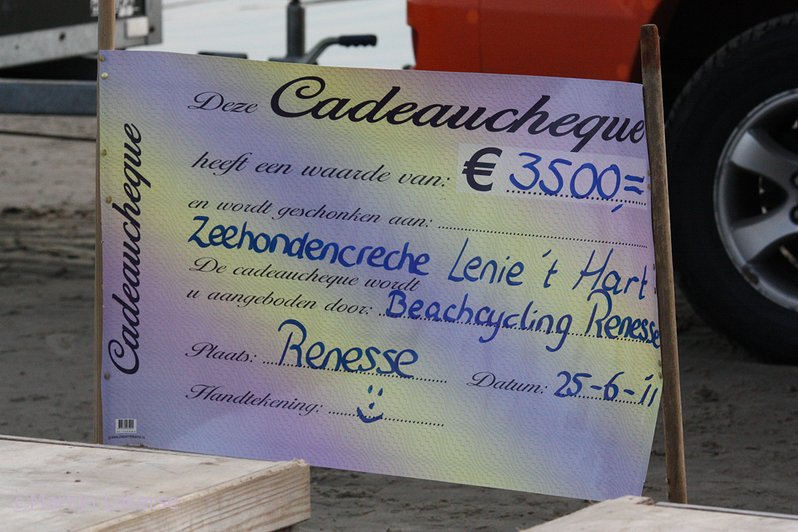 Deze Cadeaucheque
heeft een waarde van: € 3500,=
en wordt geschonken aan:
Zeehondencreche Lenie 't Hart
De cadeaucheque wordt
u aangeboden door: Beachcycling Renesse
Plaats: Renesse Datum: 25-6-'11
Handtekening:
Cadeaucheque